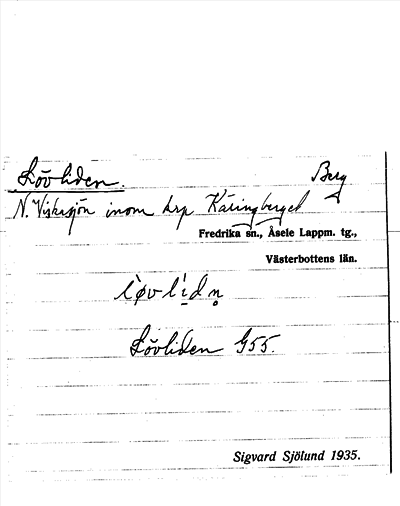 Lövliden. Berg
N. Viskasjön inom krp Käringberget
Fredrika sn., Åsele Lappm. tg.,
Västerbottens län.
Lövliden G55.
Sigvard Sjölund 1935.